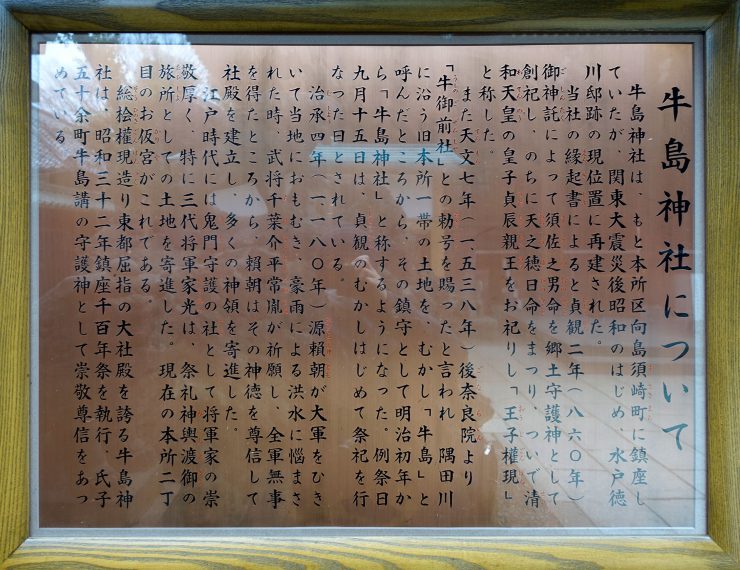 牛島神社について
牛島神社は、もと本所区向島須崎町に鎮座し
ていたが、関東大震災後昭和のはじめ、水戸徳
川邸跡の現位置に再建された。
当社の縁起書によると貞観二年(八六〇年)
御神託によって須佐之男命を郷土守護神として
創祀し、のちに天之穂日命をまつり、ついで清
和天皇の皇子貞辰親王をお祀りし「王子權現」
と称した。
また天文七年(一、五三八年)後奈良院より
「牛御前社」との勅号を賜ったと言われ 隅田川
に沿う旧本所一帯の土地を、むかし「牛島」と
呼んだところから、その鎮守として明治初年か
ら「牛島神社」と称するようになった。例祭日
九月十五日は、貞観のむかしはじめて祭祀を行
なった日とされている。
治承四年(一、一八〇年)源頼朝が大軍をひき
いて当地におもむき、豪雨による洪水に悩まさ
れた時、武将千葉介平常胤が祈願し、全軍無事
を得たところから、頼朝はその神徳を尊信して
社殿を建立し、多くの神領を寄進した。
江戸時代には鬼門守護の社として将軍家の崇
敬厚く、特に三代将軍家光は、祭礼神輿渡御の
旅所としての土地を寄進した。現在の本所二丁
目のお仮宮がこれである。
総桧權現造り東都屈指の大社殿を誇る牛島神
社は、昭和三十二年鎮座千百年祭を執行、氏子
五十余町牛島講の守護神として崇敬尊信をあつ
めている